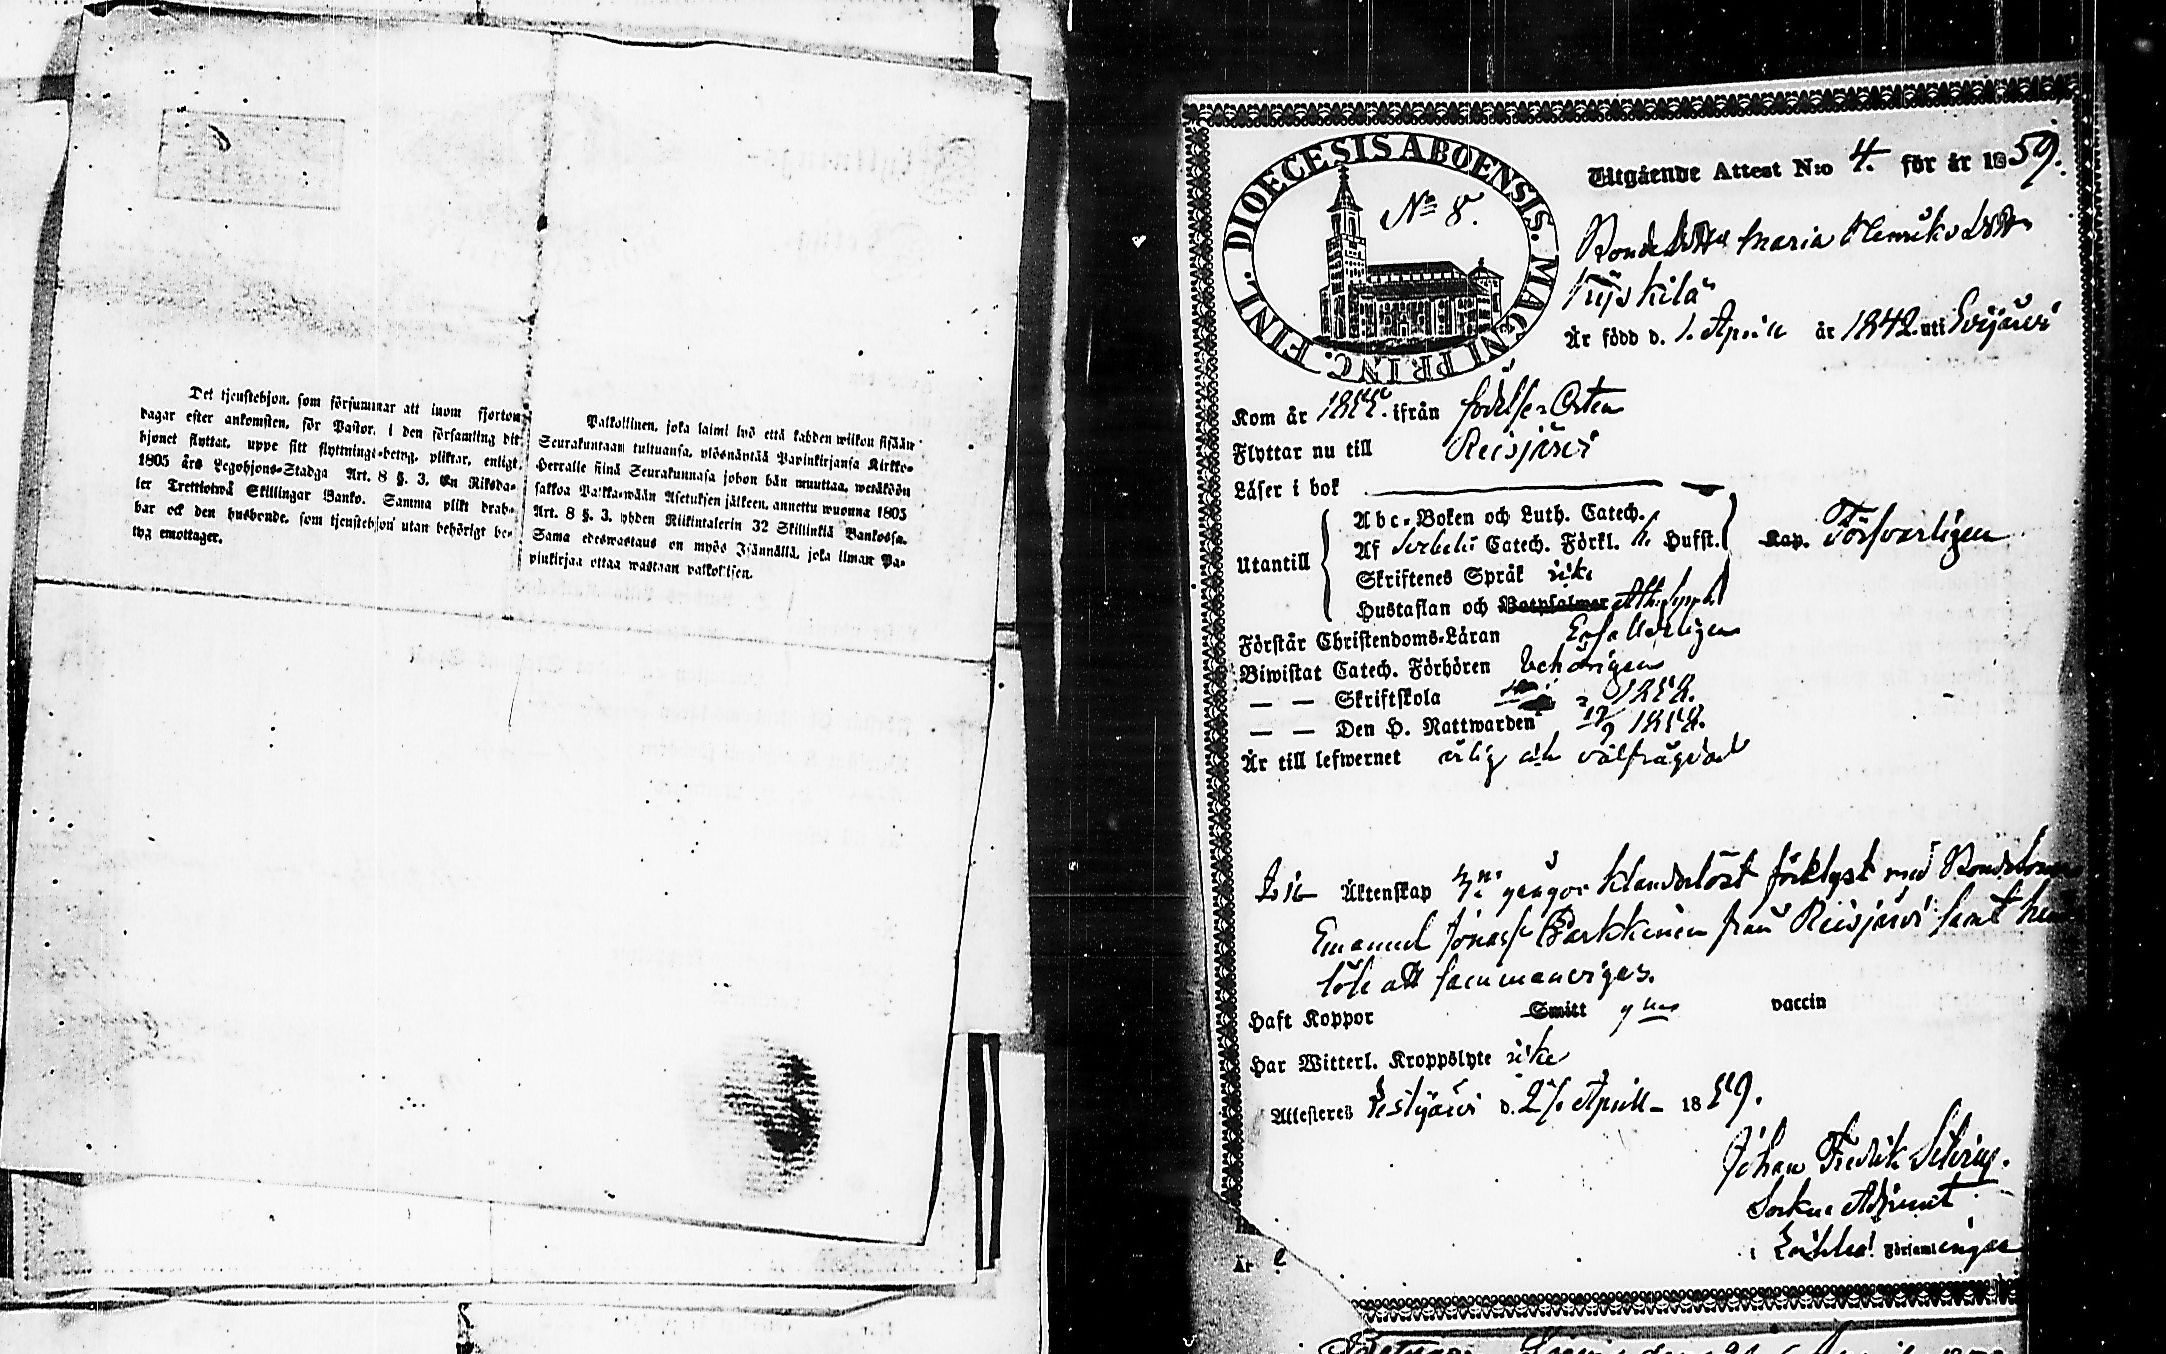 Det tjenstehjon, som försummar att inom fjorton
dagar efter ankomsten, för Pastor, i den församling dit
hjonet flyttat, uppe sitt flyttnings-betyg, pliktar, enligt
1805 års Legohjons-Stadga Art. 8 §. 3. En Riksda-
ler Trettiotwå Skillingar Banko. Samma plikt drab-
bar ock den husbonde, som tjenstehjon utan behörigt be-
tyg emottager.
Palkollinen, joka laimi lyö että kahden wiikon sisään
Seurakuntaan tultuansa, ylösnäntää Papinkirjansa Kirkko-
Herralle siinä Seurakunnasa johon hän muuttaa, wetäköön
sakkoa Palkka-wään Asetuksen jälkeen, annettu wuonna 1805
Art. 8 §. 3. yhden Riikintalerin 32 Skillinkiä Bankossa.
Sama edeswastaus on myös Isännällä, joka ilman Pa-
pinkirjaa ottaa wastaan palkollisen.
DIOECESIS ABOENSIS. MAGNI PRINC. FINL.
No 8.
Utgående Attest N:o 4. för år 1859.
Bonde Maria Henriksdotter
Är född d. 1. April år 1842. uti Evijärvi
Kom år ifrån födelse Orten
Flyttar nu till Reisjärvi
Läser i bok
Utantill
Abc-Boken och Luth. Catech.
Af Svebelii Catech. Förkl. Hufst.
Skriftenes Språk icke
Hustaflan och Botpsalmer Ath. Symb.
Kap. Försvarligen
Förstår Christendoms-Läran
Biwistat Catech. Förhören behörigen
— — Skriftskola 1858.
— — Den H. Nattwarden 1858.
Är till lefwernet ärlig och välfrägdad
Till Äktenskap gångor klanderlöst förklyst med Bondesonen
Emanuel Jonass. Parkkinen från Reisjärvi samt
löfs att sammanviges.
Haft Koppor Smitt vaccin
Har Witterl. Kroppslyte icke
Attesteres Lestijärvi d. April 1859.
Johan Fredrik
Sockne Adjunct
i församlingar
Är